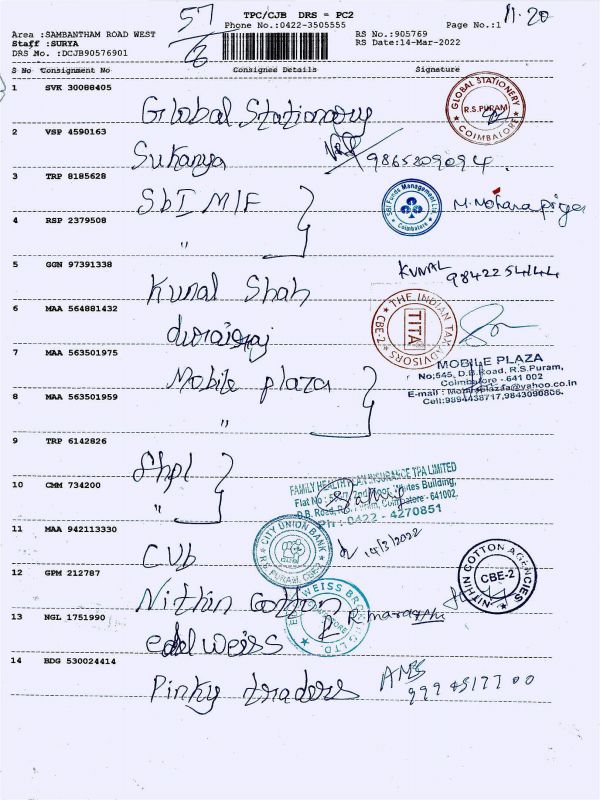 57
6
11.20
TPC/CJB DRS = PC2
Phone No.:0422-3505555
Page No.:1
Area :SAMBANTHAM ROAD WEST
Staff :SURYA
DRS No. :DCJB90576901
RS No.:905769
RS Date:14-Mar-2022
S No Consignment No Consignee Details Signature
1 SVK 30088405
Global Stationary
GLOBAL STATIONERY
R.S.PURAM
COIMBATORE
2 VSP 4590163
Sukanya 9865209094.
3 TRP 8185628
SbI MIF
SBI Funds Management Ltd.
Coimbatore
4 RSP 2379508
"
5 GGN 97391338
Kunal Shah
KUNAL
9842254144
6 MAA 564881432
duraisraj
THE INDIAN TAX ADVISORS
TITA
CBE-2
7 MAA 563501975
Mobile plaza
MOBILE PLAZA
No:545, D.B.Road, R.S.Puram,
Coimbatore - 641 002
@yahoo.co.in
Cell:9894438717,9843090806.
8 MAA 563501959
"
9 TRP 6142826
fhpl
10 CMM 734200
"
FAMILY HEALTH PLAN INSURANCE TPA LIMITED
Flat No Floor, Building,
D.B. Road, Coimbatore - 641002.
Ph : 0422 - 4270851
11 MAA 942113330
CUb
CITY UNION BANK
R S PURAM, CBE-2
14/3/2022
12 GPM 212787
Nithin Cotton
NITHIN COTTON AGENCIES
CBE-2
13 NGL 1751990
edelweiss
14 BDG 530024414
Pinky traders